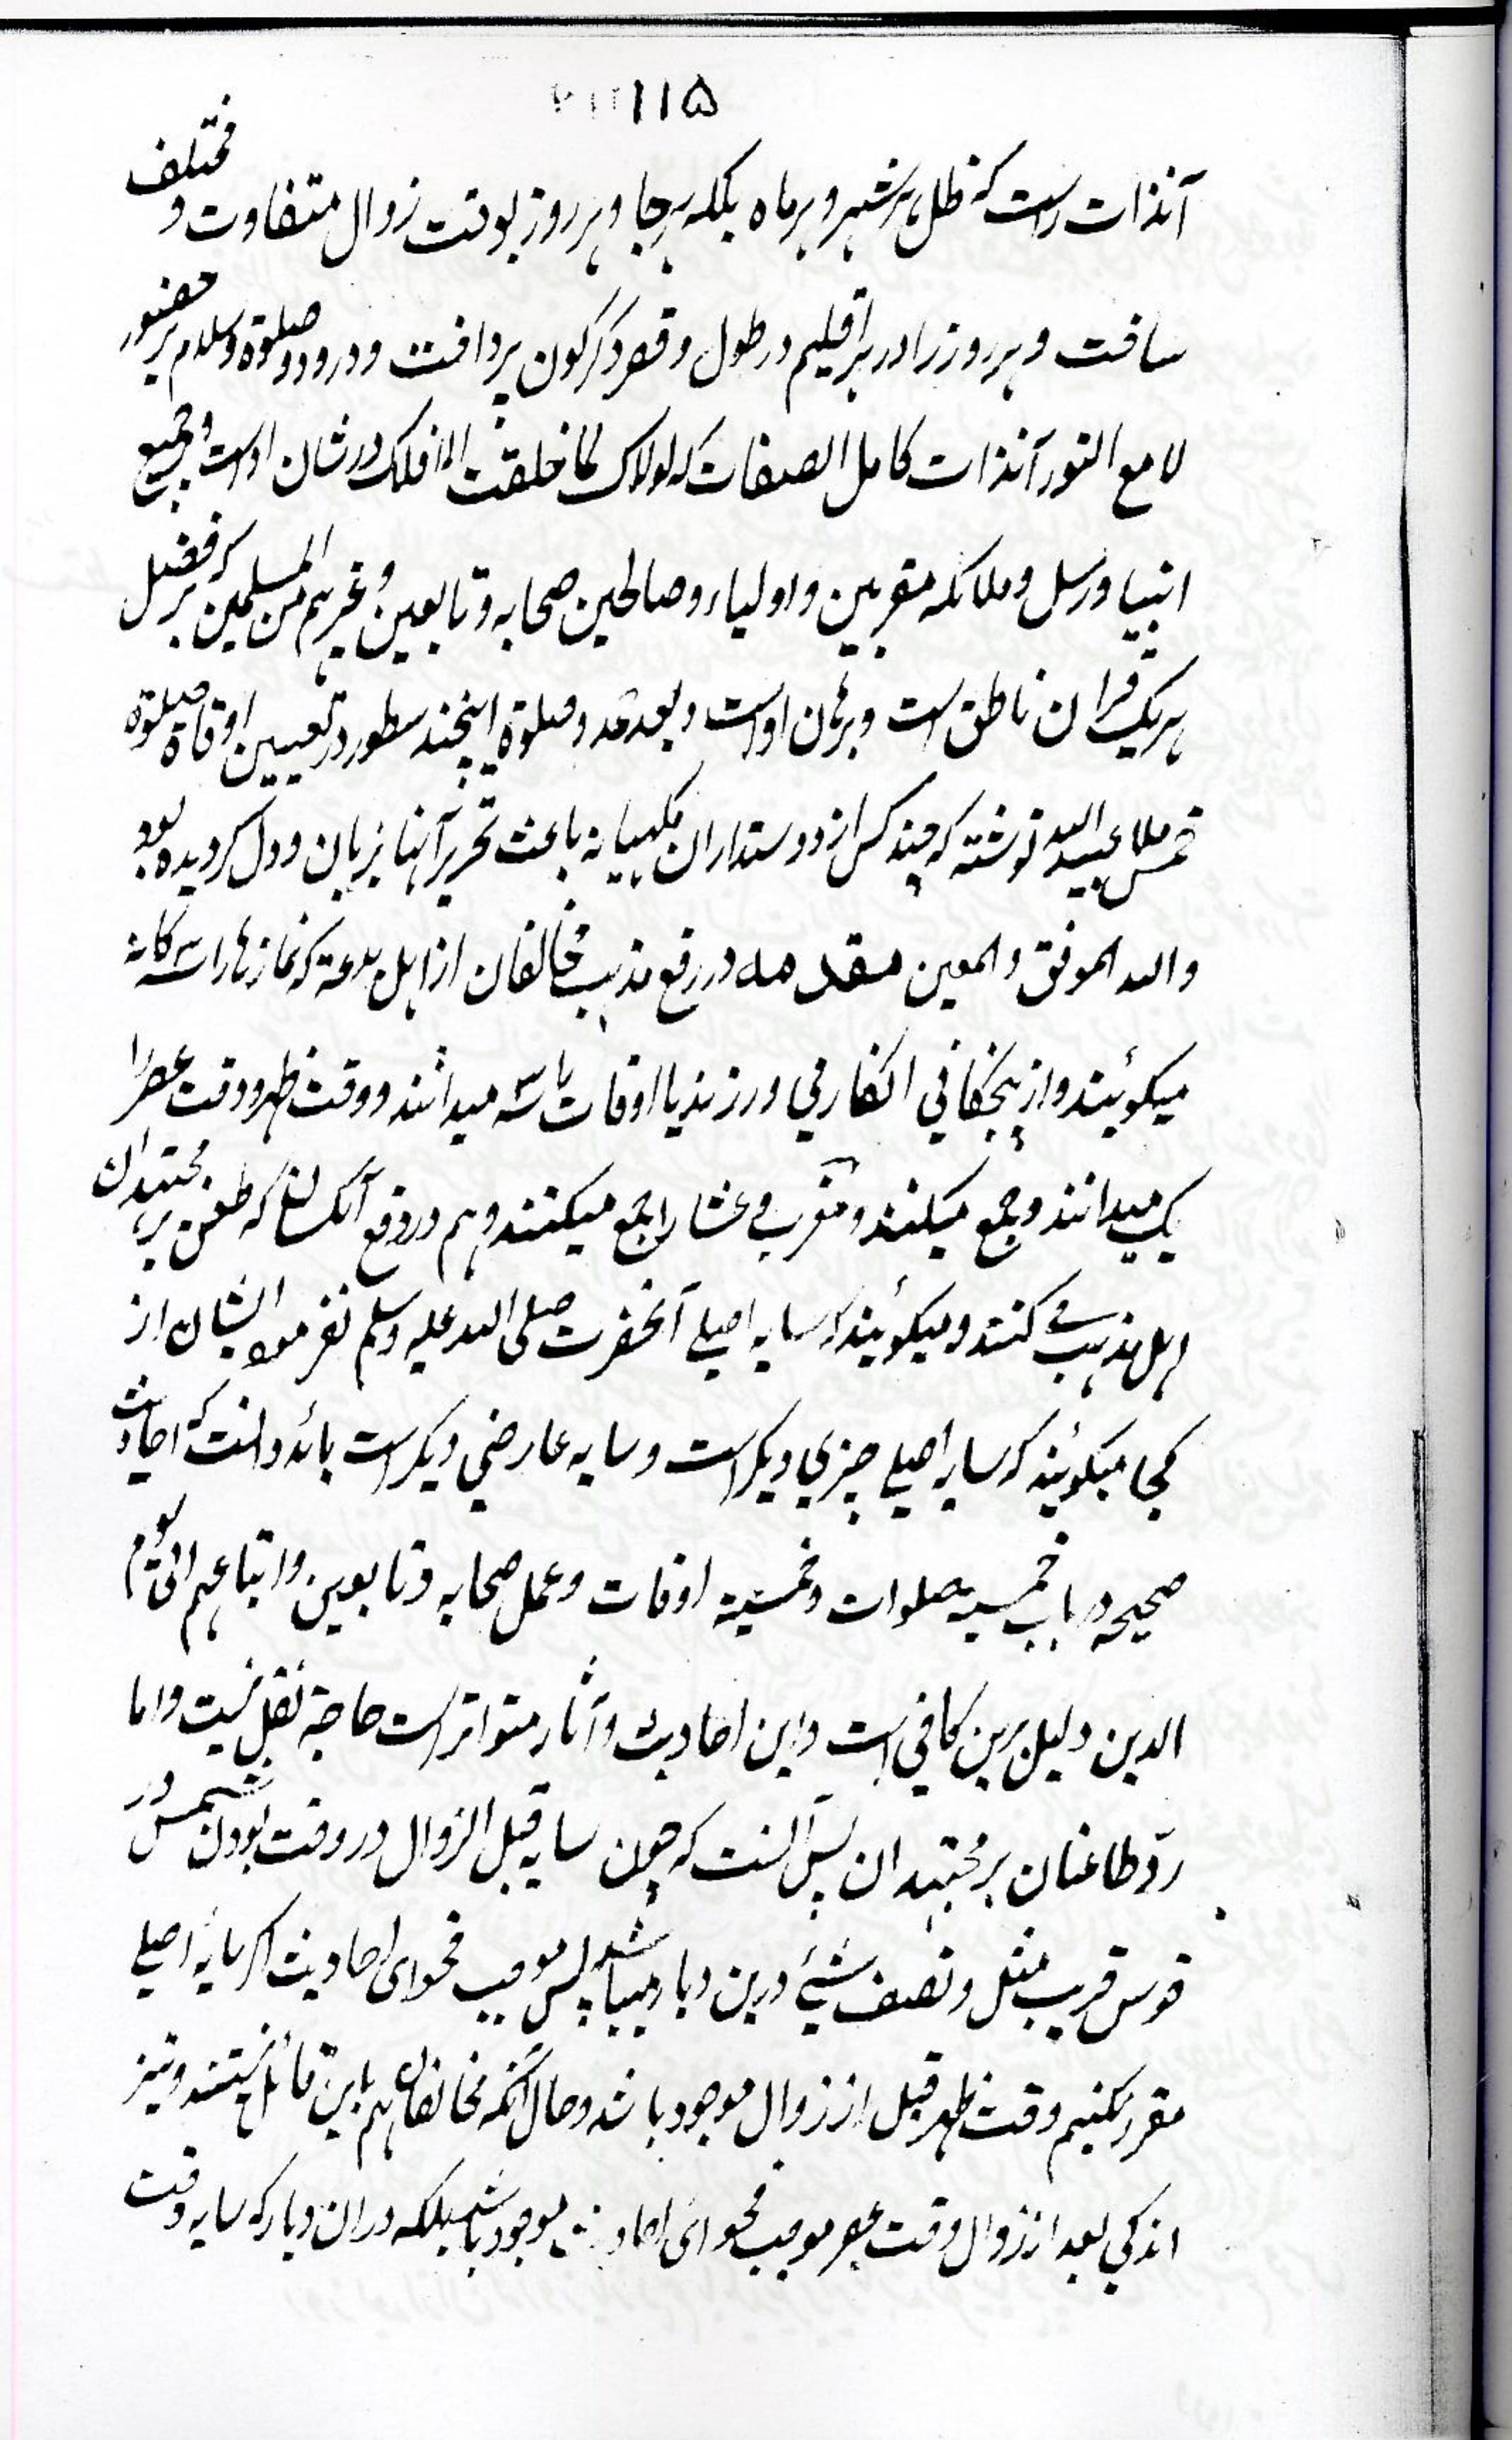 ۱۱۵
آنذات راست که ظل هر شهر و هر ماه بلکه هر جا و هر روز بوقت زوال متفاوت و مختلف
ساخت و هر روز را در هر اقلیم در طول و قصر دگرگون پرداخت و درود و صلوة و سلام بر حضور
لامع النور آنذات کامل الصفات که لولاک لما خلقت الافلاک در شان اوست و جمیع
انبیا و رسل و ملائکه مقربین و اولیاء و صالحین صحابه و تابعین و غیرهم من المسلمین که بر فضل
هر یک قران ناطق است و برهان اوست و بعد حمد و صلوة اینچند سطور در تعیین اوقاة صلوة
خمس ملا عبید الله نوشته که چند کس از دوستداران باعث تحریر آنها بزبان و دل کردیده بود
والله الموفق والمعین مقدمه در رفع مذهب مخالفان از اهل بدعة که نمازها را سه کانه
میکوئیند و از پنجکانی انکار می ورزند یا اوقات را سه میدانند و وقت ظهر و وقت عصر را
یک میدانند و جمع میکنند و مغرب و عشا را جمع میکنند و هم در رفع آنکسان که طعن بر مجتهدان
اهل مذهب می کنند و میکوئیند که سایه اصلے آنحضرت صلی الله علیه وسلم نفرموده ایشان از
کجا میکوئیند که سایه اصلے چیزی دیکر است و سایه عارضی دیکر است باید دانست که احادیث
صحیحه در باب خمسیة صلوات و خمسیة اوقات و عمل صحابه و تابعین و اتباعهم الی یوم
الدین دلیل برین کافی است و این احادیث و آثار متواتر است حاجة نقل نیست و اما
ردّ طاعنان بر مجتهدان پس آنست که چون سایه قبل الزوال در وقت بودن شمس در
قوس قریب مثل و نصف شیئے درین دیار میباشد پس موجب فحوای احادیث اکر سایه اصلے
مقرر نکنیم وقت ظهر قبل از زوال موجود باشد و حال آنکه مخالفان هم باین قائل نیستند و نیز
اندکی بعد از زوال وقت عصر موجب فحوای احادیث موجود باشد بلکه در ان دیار که سایه وقت